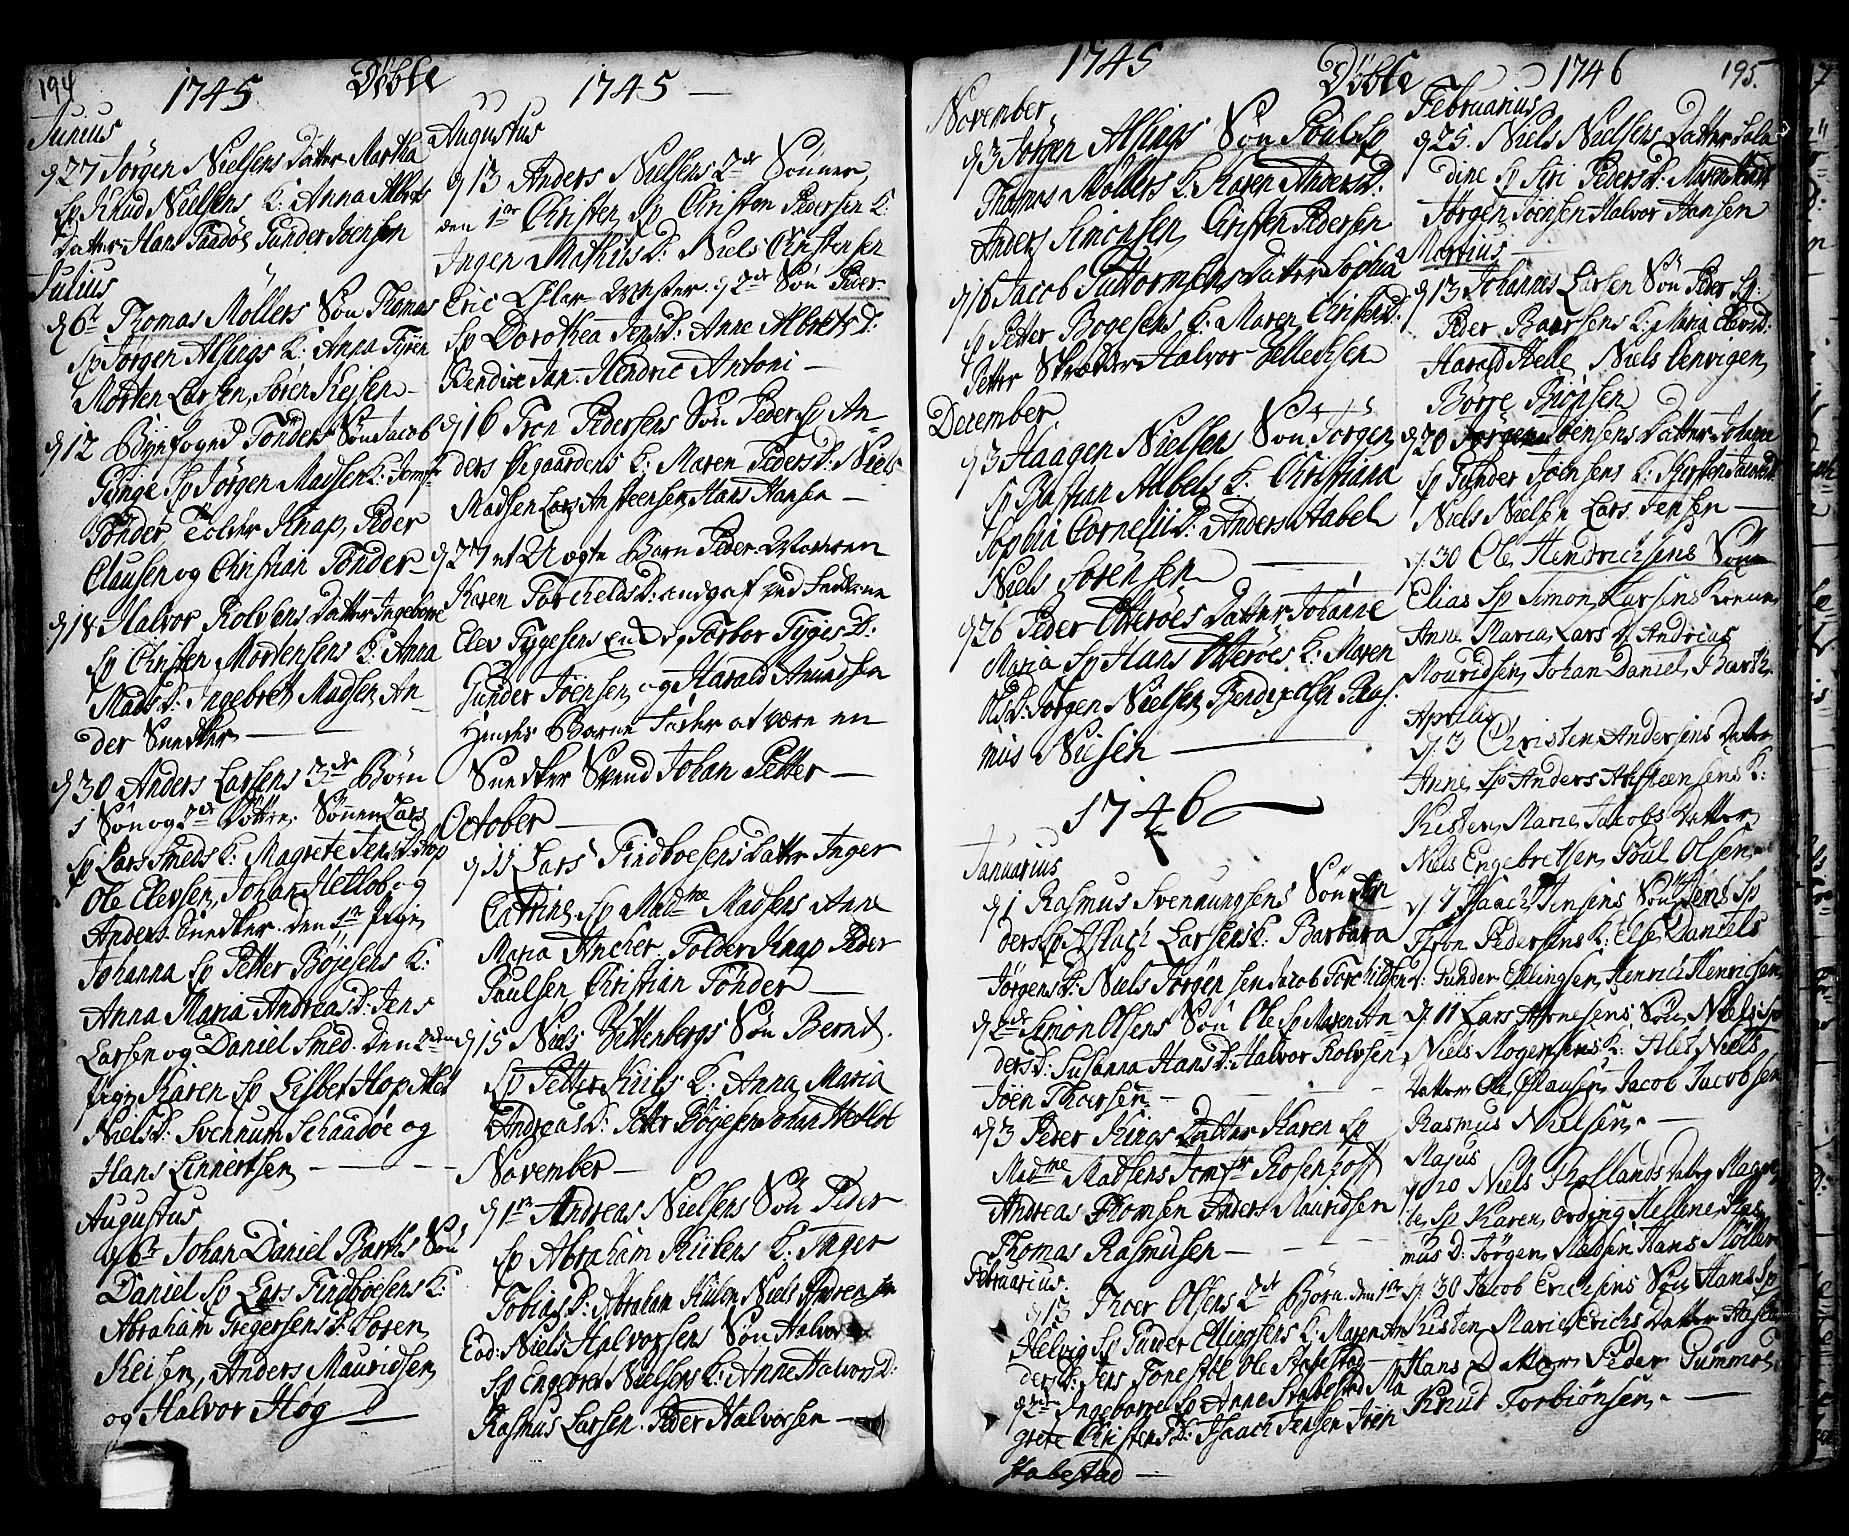 194
1745 Döbte 1745
Junius
d 27 Jörgen Nielsens Datter Martha
Sp Knud Nielsens K: Anna Alberts
Datter Hans Gunder Joensen
Julius
d 6t Thomas Möllers Sön Thomas
Sp Jörgen Alsings K: Anna
Morten Larsen, Sören Keisen
d 12 Byefoged Tönders Sön Jacob
Sp Jörgen Madsens K: Jomfr
Tönder Tolder Knap, Peder
Clausen og Christian Tönder
d 18 Halvor Rolvsens Datter Ingeborg
Sp Christen Mortensens K: Anna
Mads D: Ingebret Madsen An-
der Snedker
d 30 Anders Larsens 3de Börn
1 Sön og 2de Döttre, Sönnen Lars
Sp Lars Smeds K: Magrete Jens D:
Ole Elevsen, Johan Hetlob og
Anders Snedker. den 1te Pige
Johanna Sp Petter Böjesens K:
Anna Maria Andreas D: Jens
Larsen og Daniel Smed. Den 2den
Pige Karen Sp Lisbet
Niels D: Svennum Schaadöe og
Hans Linnertsen
Augustus
d 6t Johan Daniel Barths Sön
Daniel Sp Lars Findboesens K:
Abraham Gregersens D: Sören
Keisen, Anders Mauridsen
og Halvor Høg
Augustus
d 13 Anders Nielsens 2de Sönner,
den 1te Christen Sp Christen Pedersen K:
Ingen Mathis D: Niels Christensen
Eric d 2de Sön Peder
Sp Dorothea Jens D: Anne Albrets D:
Bendix Jan. Hendric Antoni
d 16 Tron Pedersens Sön Peder Sp An-
ders Øegaardens K: Maren Peders D: Niels
Madsen Lars Ansteensen Hans Hansen
d 27 et Uægte Barn Peder Moderen
Karen Torchelds D: angaf ved Fadderne
Elev Tygesen Torbor Tygis D:
Gunder Joensen og Harald Amundsen
Hendes Barne Fader at være en
Snedker Svend Johan Petter
October
d 11 Lars Findboesens Datter Inger
Catrine Sp Madme Madsens Anne
Maria Ancher, Tolder Knap Peder
Paulsen Christian Tönder
d 15 Niels Bettenbergs Sön Bernt
Sp Petter Kiils K: Anna Maria
Andreas D: Petter Böjesen Johan Hetlot
November
d 1te Andreas Nielsens Sön Peder
Sp Abraham Kiilens K: Inger
Tobias D: Abraham Kiilen Niels Andreasen
Eod: Niels Halvorsens Sön Halvor
Sp Engebret Nielsens K: Anne Halvors D:
Rasmus Larsen. Peder Halvorsen
1745 Döbte 1746 195.
November
d 3 Jörgen Alsings Sön Poul Sp
Thomas Möllers K. Karen Anders D:
Anders Simonsen, Christen Pedersen
d 16 Jacob Guttormsens Datter Sophia
Sp Petter Bogesens K: Maren Christens D:
Petter Skræder Halvor Jellechsen
December
d 3 Haagen Nielsens Sön Jörgen,
Sp Bastian Aabels K. Christiana
Sophia Cornelii D: Anders Aabel
Niels Sörensen
d 26 Peder Otteröes Datter Johanne
Maria Sp Hans Otteröes K: Maren
Ols D: Jörgen Nielsen, Bendix Olsen Ras-
mus Nielsen
1746
Januarius
d 1 Rasmus Svennungsens Sön An-
ders Sp Aslach Larsens K: Barbara
Jörgens D: Niels Jörgensen Jacob Torchildsen
d 2de Simon Olsens Sön Ole Sp Maren An-
ders D: Susanna Hans D: Halvor Rolvsen
Joen Thorsen
d 3 Peder Kings Datter Karen Sp
Madme Madsens Jomfr Rosenhoff
Andreas Thomsen Anders Mauridsen
Thomas Rasmusen
Februarius.
d 13 Thoer Olsens 2de Börn. den 1te
Helvig Sp Gunder Ellingsens K: Maren An
ders D: Jens Ole Stabestad
d 2den Ingeborre Sp Anne Stabestad Ma
grete Christens D: Isaach Jensen Joen
Stabestad
Februarius
d 25. Niels Nielsens Datter
dine Sp Siri Peders D: Maren
Jörgen Joensen Halvor Hansen
Martius
d 13 Johannes Larsen Sön Peder Sp:
Peder Baarsens K: Maria Elevs D:
Harald Helle, Niels Cenvigen,
Börre Biönsen
d 20 Jörgen Joensens Datter Johanne
Sp Gunder Joensens K: Kirsten Jacobs D
Niels Nielsen Lars Jensen
d. 30 Ole Hendrichsens Sön
Elias Sp Simon Larsens Konne
Anne Maria Lars D. Andreas
Mouridsen, Johan Daniel Barth.
Aprilis
d. 3 Christen Andersens Datter
Anne Sp Anders Absteensens K:
Kisten Marie Jacobs Datter
Niels Engebretsen, Poul Olsen
d 7 Isaach Jensens Sön Jens Sp
Tron Pedersens K: Else Daniels
D: Gunder Ellingsen, Henrich Henrichsen
d. 11 Lars Arnesens Sön Niels Sp
Niels Mogensens K: Alet Niels
Datter Ole Clausen Jacob Jacobsen
Rasmus Nielsen.
Majus
d 20 Niels Rollands Datter Magre
te Sp Karen Ording Hellene Ras
mus D: Jörgen Madsen Hans Möller
d. 30 Jacob Erichsens Sön Hans Sp
Kisten Marie Erichs Datter
Hans Datter, Peder Gummes
Knud Torbiönsen.